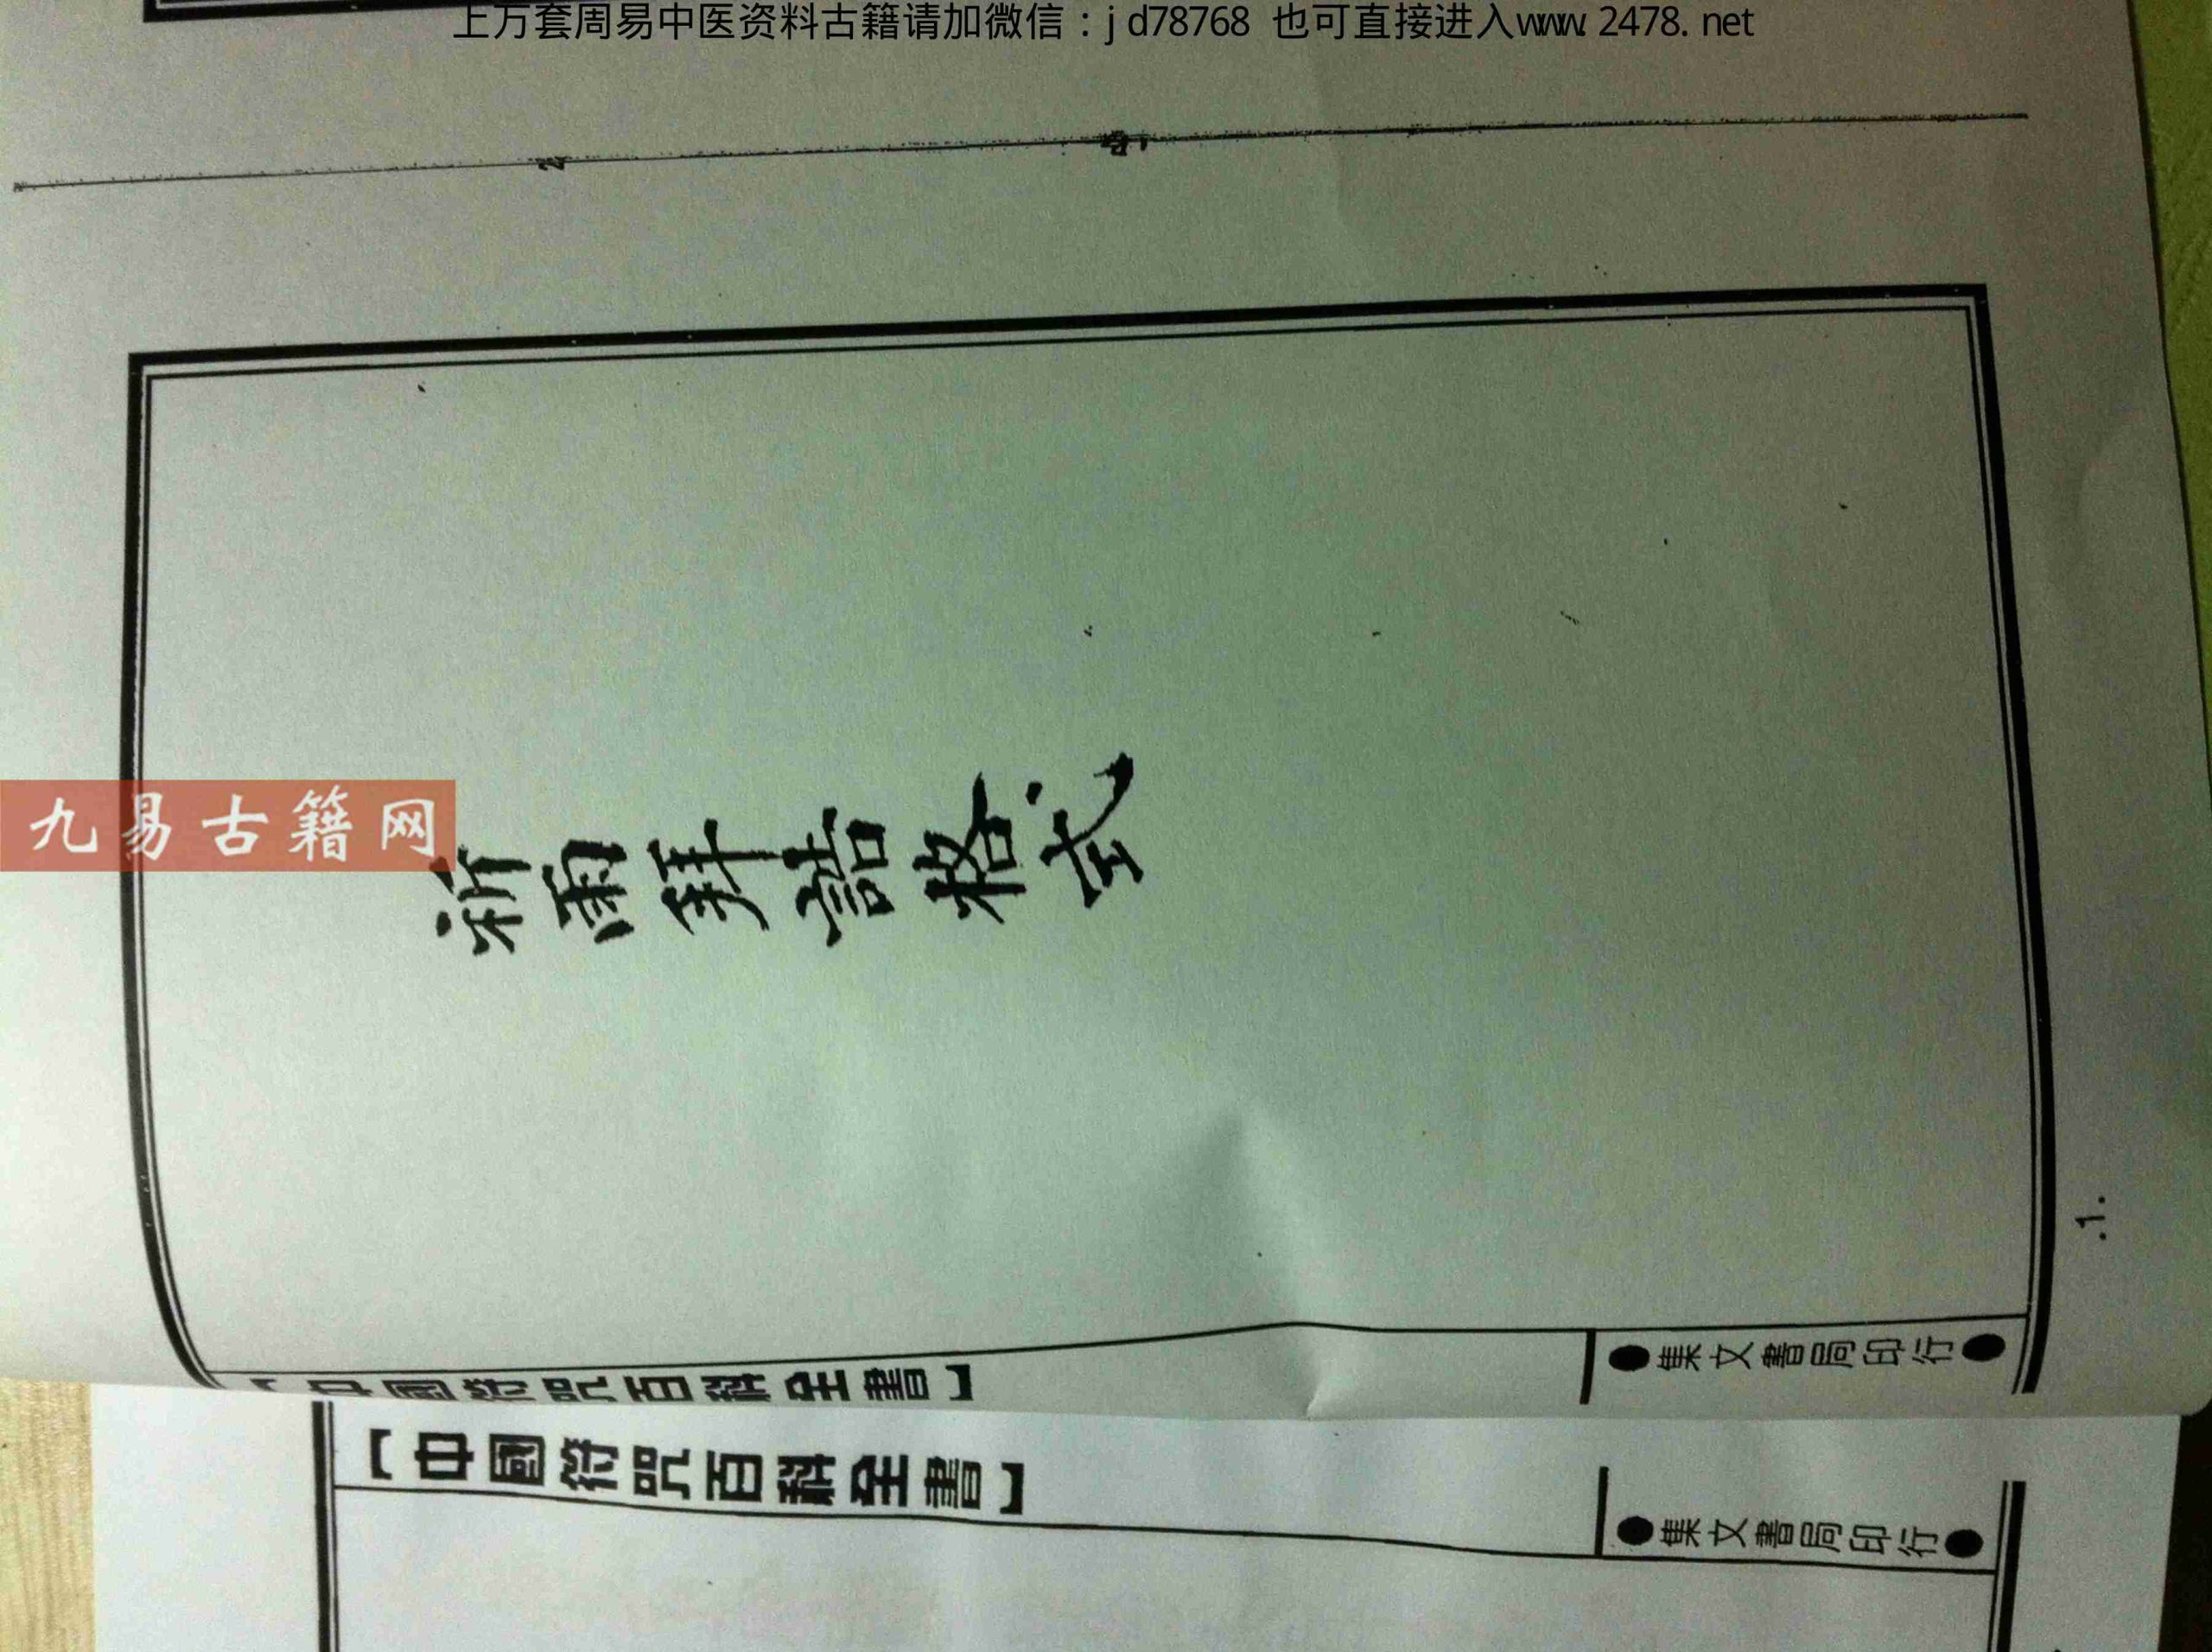 上万套周易中医资料古籍请加微信：jd78768 也可直接进入www.2478.net
九易古籍网
祈雨拜誥格式
中國符咒百科全書】
●集文書局印行●
.1.
【中國符咒百科全書】
●集文書局印行●